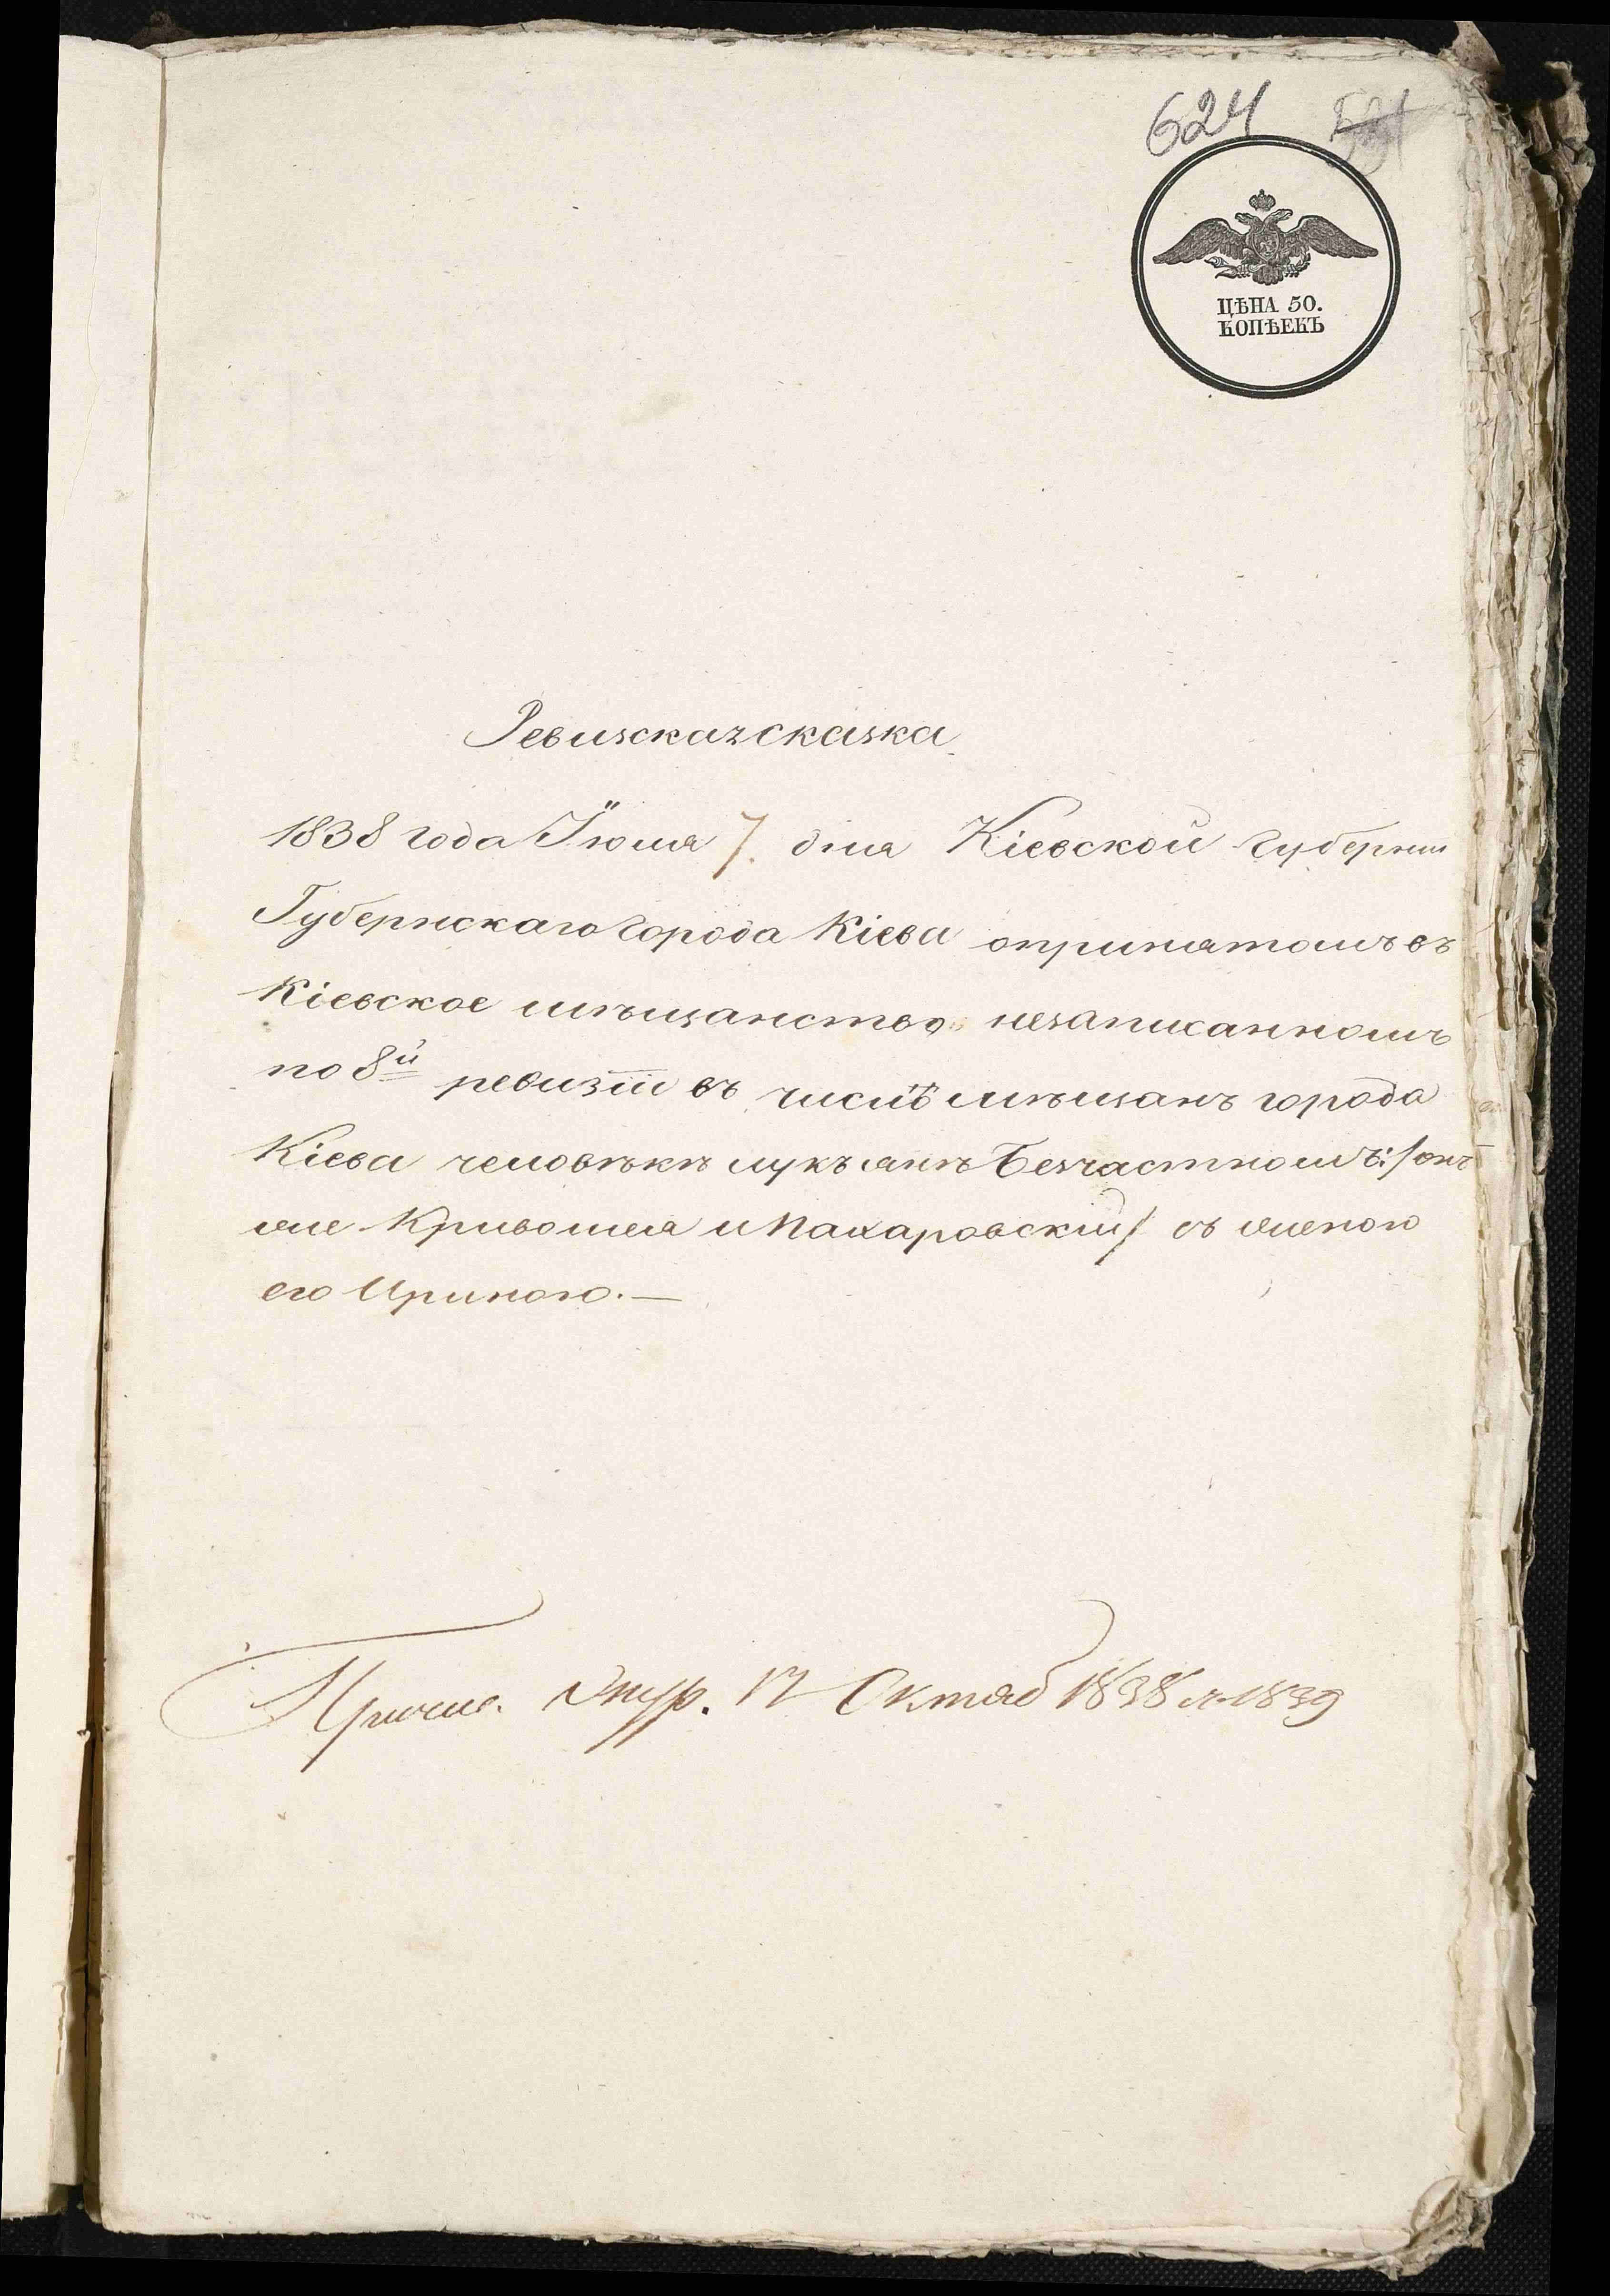 624
ЦѢНА 50.
КОПѢЕКЪ
Ревизскаязсказка
1838 года Іюля 7. дня Кіевской губерніи
Губернскаго города Кіева опринятомъ въ
Кіевское мѣщанство незаписанномъ
по 8й ревизіи въ числѣ мѣщанъ города
Кіева человѣкѣ лукъянѣ Безчастномъ: /онъ
же Кривошея и Махаровскій/ съ женою
его Ириною.—
Причис. 17 Октяб 1838 1839